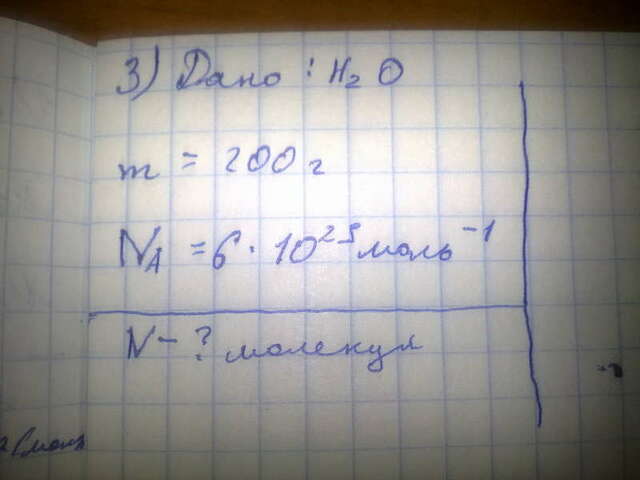 3) Дано: H₂O
m = 200 г
Nᴀ = 6 · 10²³ моль⁻¹
N – ? молекул